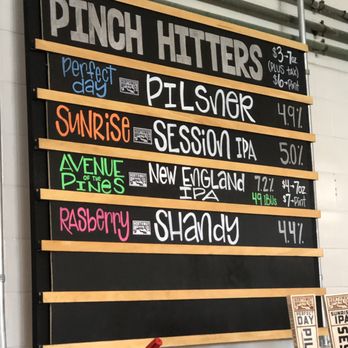 PINCH HITTERS
$3-7oz
(PLUS TAX)
$6-Pint
PERFECT DAY PILSNER 4.9%
SUNRISE SESSION IPA 5.0%
AVENUE OF THE PINES NEW ENGLAND IPA 7.2% 49 IBUs $4-7oz $7-Pint
RASBERRY SHANDY 4.4%
PERFECT DAY
SUNRISE IPA